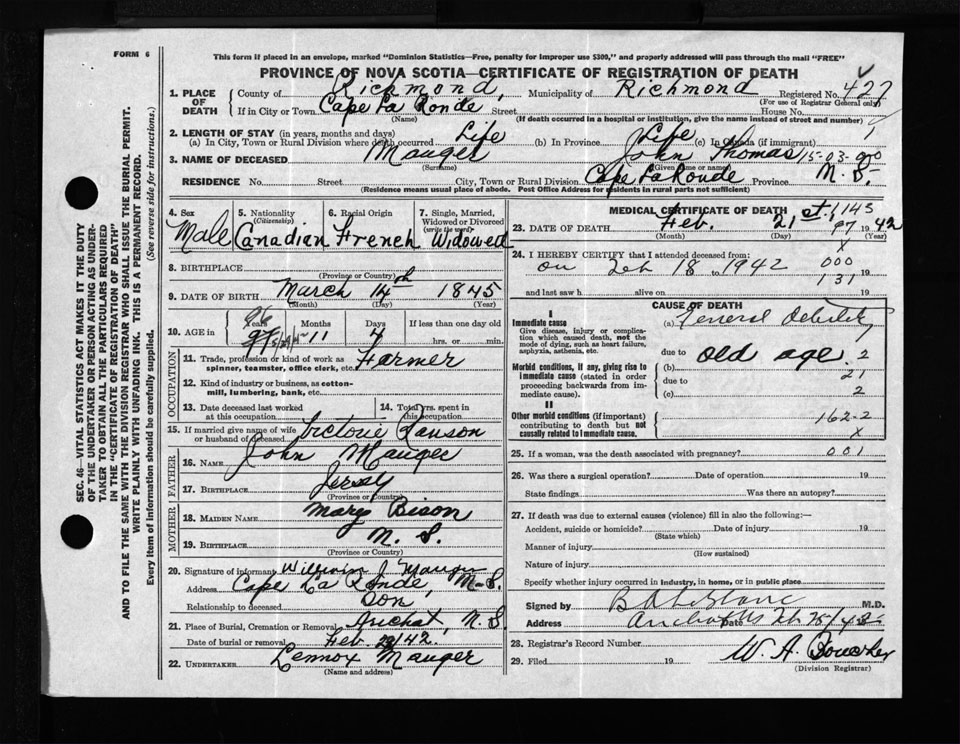 FORM 6
This form if placed in an envelope, marked "Dominion Statistics—Free, penalty for improper use $300," and properly addressed will pass through the mail "FREE"
PROVINCE OF NOVA SCOTIA—CERTIFICATE OF REGISTRATION OF DEATH
1. PLACE OF DEATH
County of Richmond, Municipality of Richmond Registered No. 427
(For use of Registrar General only)
If in City or Town Cape La Ronde Street House No.
(Name) (If death occurred in a hospital or institution, give the name instead of street and number)
2. LENGTH OF STAY (in years, months and days)
(a) In City, Town or Rural Division where death occurred Life (b) In Province Life (c) In Canada (if immigrant)
3. NAME OF DECEASED Mauger John Thomas 15-03-000
(Surname) (Given name or names)
RESIDENCE No. Street City, Town or Rural Division Cape La Ronde Province N. S.
(Residence means usual place of abode. Post Office Address for residents in rural parts not sufficient)
4. Sex Male
5. Nationality (Citizenship) Canadian
6. Racial Origin French
7. Single, Married, Widowed or Divorced (write the word) Widowed
8. BIRTHPLACE
(Province or Country)
9. DATE OF BIRTH March 14th 1845
(Month) (Day) (Year)
10. AGE in
Years 96 97
Months 11
Days 7
If less than one day old
hrs. or min.
OCCUPATION
11. Trade, profession or kind of work as spinner, teamster, office clerk, etc. Farmer
12. Kind of industry or business, as cotton-mill, lumbering, bank, etc.
13. Date deceased last worked at this occupation
14. Total yrs. spent in this occupation
15. If married give name of wife or husband of deceased Victorie
FATHER
16. NAME John Mauger
17. BIRTHPLACE Jersey
(Province or Country)
MOTHER
18. MAIDEN NAME Mary
19. BIRTHPLACE N. S.
(Province or Country)
20. Signature of informant William J Mauger
Address Cape La Ronde, N. S.
Relationship to deceased Son
21. Place of Burial, Cremation or Removal Arichat, N. S.
Date of burial or removal Feb. 23/42.
22. UNDERTAKER Lennox Mauger
(Name and address)
MEDICAL CERTIFICATE OF DEATH
23. DATE OF DEATH Feb. 21 1942
(Month) (Day) (Year)
24. I HEREBY CERTIFY that I attended deceased from:
on Feb 18 to 1942 000
131 19
and last saw h alive on 19
CAUSE OF DEATH
I
Immediate cause
Give disease, injury or complication which caused death, not the mode of dying, such as heart failure, asphyxia, asthenia, etc.
(a) General Debility
Morbid conditions, if any, giving rise to immediate cause (stated in order proceeding backwards from immediate cause)
due to (b) old age 2
21
due to (c) 2
II
Other morbid conditions (if important) contributing to death but not causally related to immediate cause.
162-2
X
25. If a woman, was the death associated with pregnancy? 001
26. Was there a surgical operation? Date of operation 19
State findings Was there an autopsy?
27. If death was due to external causes (violence) fill in also the following:—
Accident, suicide or homicide? Date of injury 19
(State which)
Manner of injury
(How sustained)
Nature of injury
Specify whether injury occurred in industry, in home, or in public place
Signed by B A LeBlanc M.D.
Address Arichat NS Date Feb
28. Registrar's Record Number
29. Filed 19
(Division Registrar)
SEC. 46—VITAL STATISTICS ACT MAKES IT THE DUTY OF THE UNDERTAKER OR PERSON ACTING AS UNDERTAKER TO OBTAIN ALL THE PARTICULARS REQUIRED IN THE "CERTIFICATE OF REGISTRATION OF DEATH" AND TO FILE THE SAME WITH THE DIVISION REGISTRAR WHO SHALL ISSUE THE BURIAL PERMIT.
WRITE PLAINLY WITH UNFADING INK. THIS IS A PERMANENT RECORD.
Every item of information should be carefully supplied. (See reverse side for instructions.)